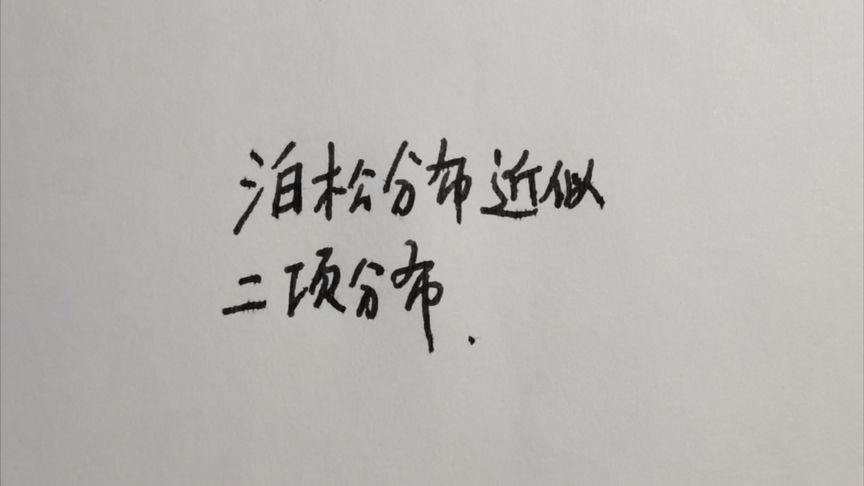 泊松分布近似
二项分布.